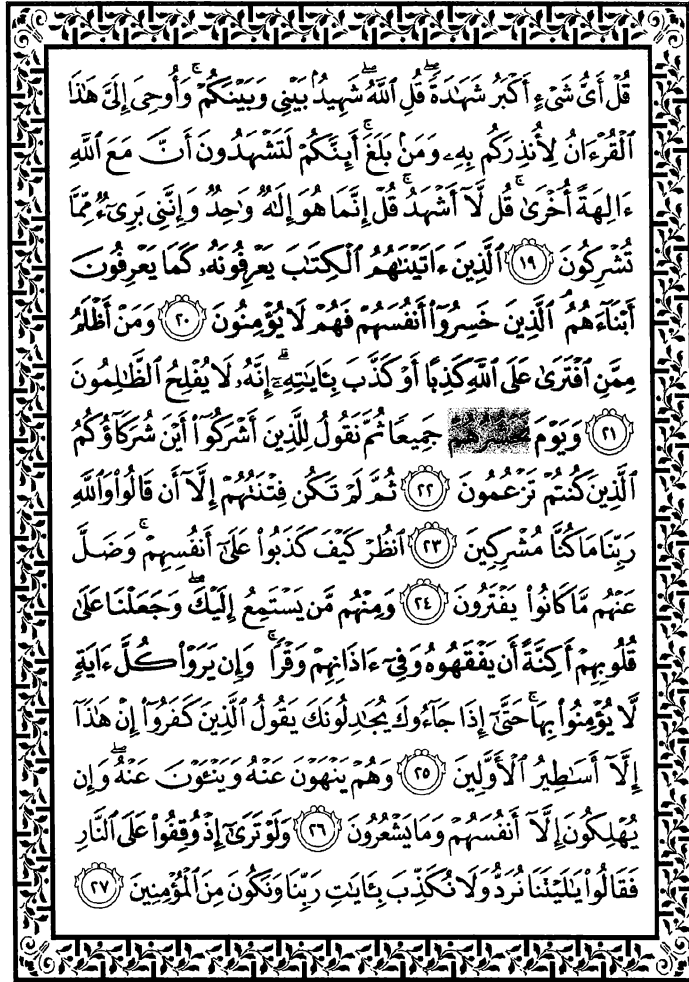 قُلْ أَىُّ شَىْءٍ أَكْبَرُ شَهَٰدَةً ۖ قُلِ ٱللَّهُ ۖ شَهِيدٌۢ بَيْنِى وَبَيْنَكُمْ ۚ وَأُوحِىَ إِلَىَّ هَٰذَا
ٱلْقُرْءَانُ لِأُنذِرَكُم بِهِۦ وَمَنۢ بَلَغَ ۚ أَئِنَّكُمْ لَتَشْهَدُونَ أَنَّ مَعَ ٱللَّهِ
ءَالِهَةً أُخْرَىٰ ۚ قُل لَّآ أَشْهَدُ ۚ قُلْ إِنَّمَا هُوَ إِلَٰهٌ وَٰحِدٌ وَإِنَّنِى بَرِىٓءٌ مِّمَّا
تُشْرِكُونَ ١٩ ٱلَّذِينَ ءَاتَيْنَٰهُمُ ٱلْكِتَٰبَ يَعْرِفُونَهُۥ كَمَا يَعْرِفُونَ
أَبْنَآءَهُمُ ۘ ٱلَّذِينَ خَسِرُوٓا۟ أَنفُسَهُمْ فَهُمْ لَا يُؤْمِنُونَ ٢٠ وَمَنْ أَظْلَمُ
مِمَّنِ ٱفْتَرَىٰ عَلَى ٱللَّهِ كَذِبًا أَوْ كَذَّبَ بِـَٔايَٰتِهِۦٓ ۗ إِنَّهُۥ لَا يُفْلِحُ ٱلظَّٰلِمُونَ
٢١ وَيَوْمَ جَمِيعًا ثُمَّ نَقُولُ لِلَّذِينَ أَشْرَكُوٓا۟ أَيْنَ شُرَكَآؤُكُمُ
ٱلَّذِينَ كُنتُمْ تَزْعُمُونَ ٢٢ ثُمَّ لَمْ تَكُن فِتْنَتُهُمْ إِلَّآ أَن قَالُوا۟ وَٱللَّهِ
رَبِّنَا مَا كُنَّا مُشْرِكِينَ ٢٣ ٱنظُرْ كَيْفَ كَذَبُوا۟ عَلَىٰٓ أَنفُسِهِمْ ۚ وَضَلَّ
عَنْهُم مَّا كَانُوا۟ يَفْتَرُونَ ٢٤ وَمِنْهُم مَّن يَسْتَمِعُ إِلَيْكَ ۖ وَجَعَلْنَا عَلَىٰ
قُلُوبِهِمْ أَكِنَّةً أَن يَفْقَهُوهُ وَفِىٓ ءَاذَانِهِمْ وَقْرًا ۚ وَإِن يَرَوْا۟ كُلَّ ءَايَةٍ
لَّا يُؤْمِنُوا۟ بِهَا ۚ حَتَّىٰٓ إِذَا جَآءُوكَ يُجَٰدِلُونَكَ يَقُولُ ٱلَّذِينَ كَفَرُوٓا۟ إِنْ هَٰذَآ
إِلَّآ أَسَٰطِيرُ ٱلْأَوَّلِينَ ٢٥ وَهُمْ يَنْهَوْنَ عَنْهُ وَيَنْـَٔوْنَ عَنْهُ ۖ وَإِن
يُهْلِكُونَ إِلَّآ أَنفُسَهُمْ وَمَا يَشْعُرُونَ ٢٦ وَلَوْ تَرَىٰٓ إِذْ وُقِفُوا۟ عَلَى ٱلنَّارِ
فَقَالُوا۟ يَٰلَيْتَنَا نُرَدُّ وَلَا نُكَذِّبَ بِـَٔايَٰتِ رَبِّنَا وَنَكُونَ مِنَ ٱلْمُؤْمِنِينَ ٢٧